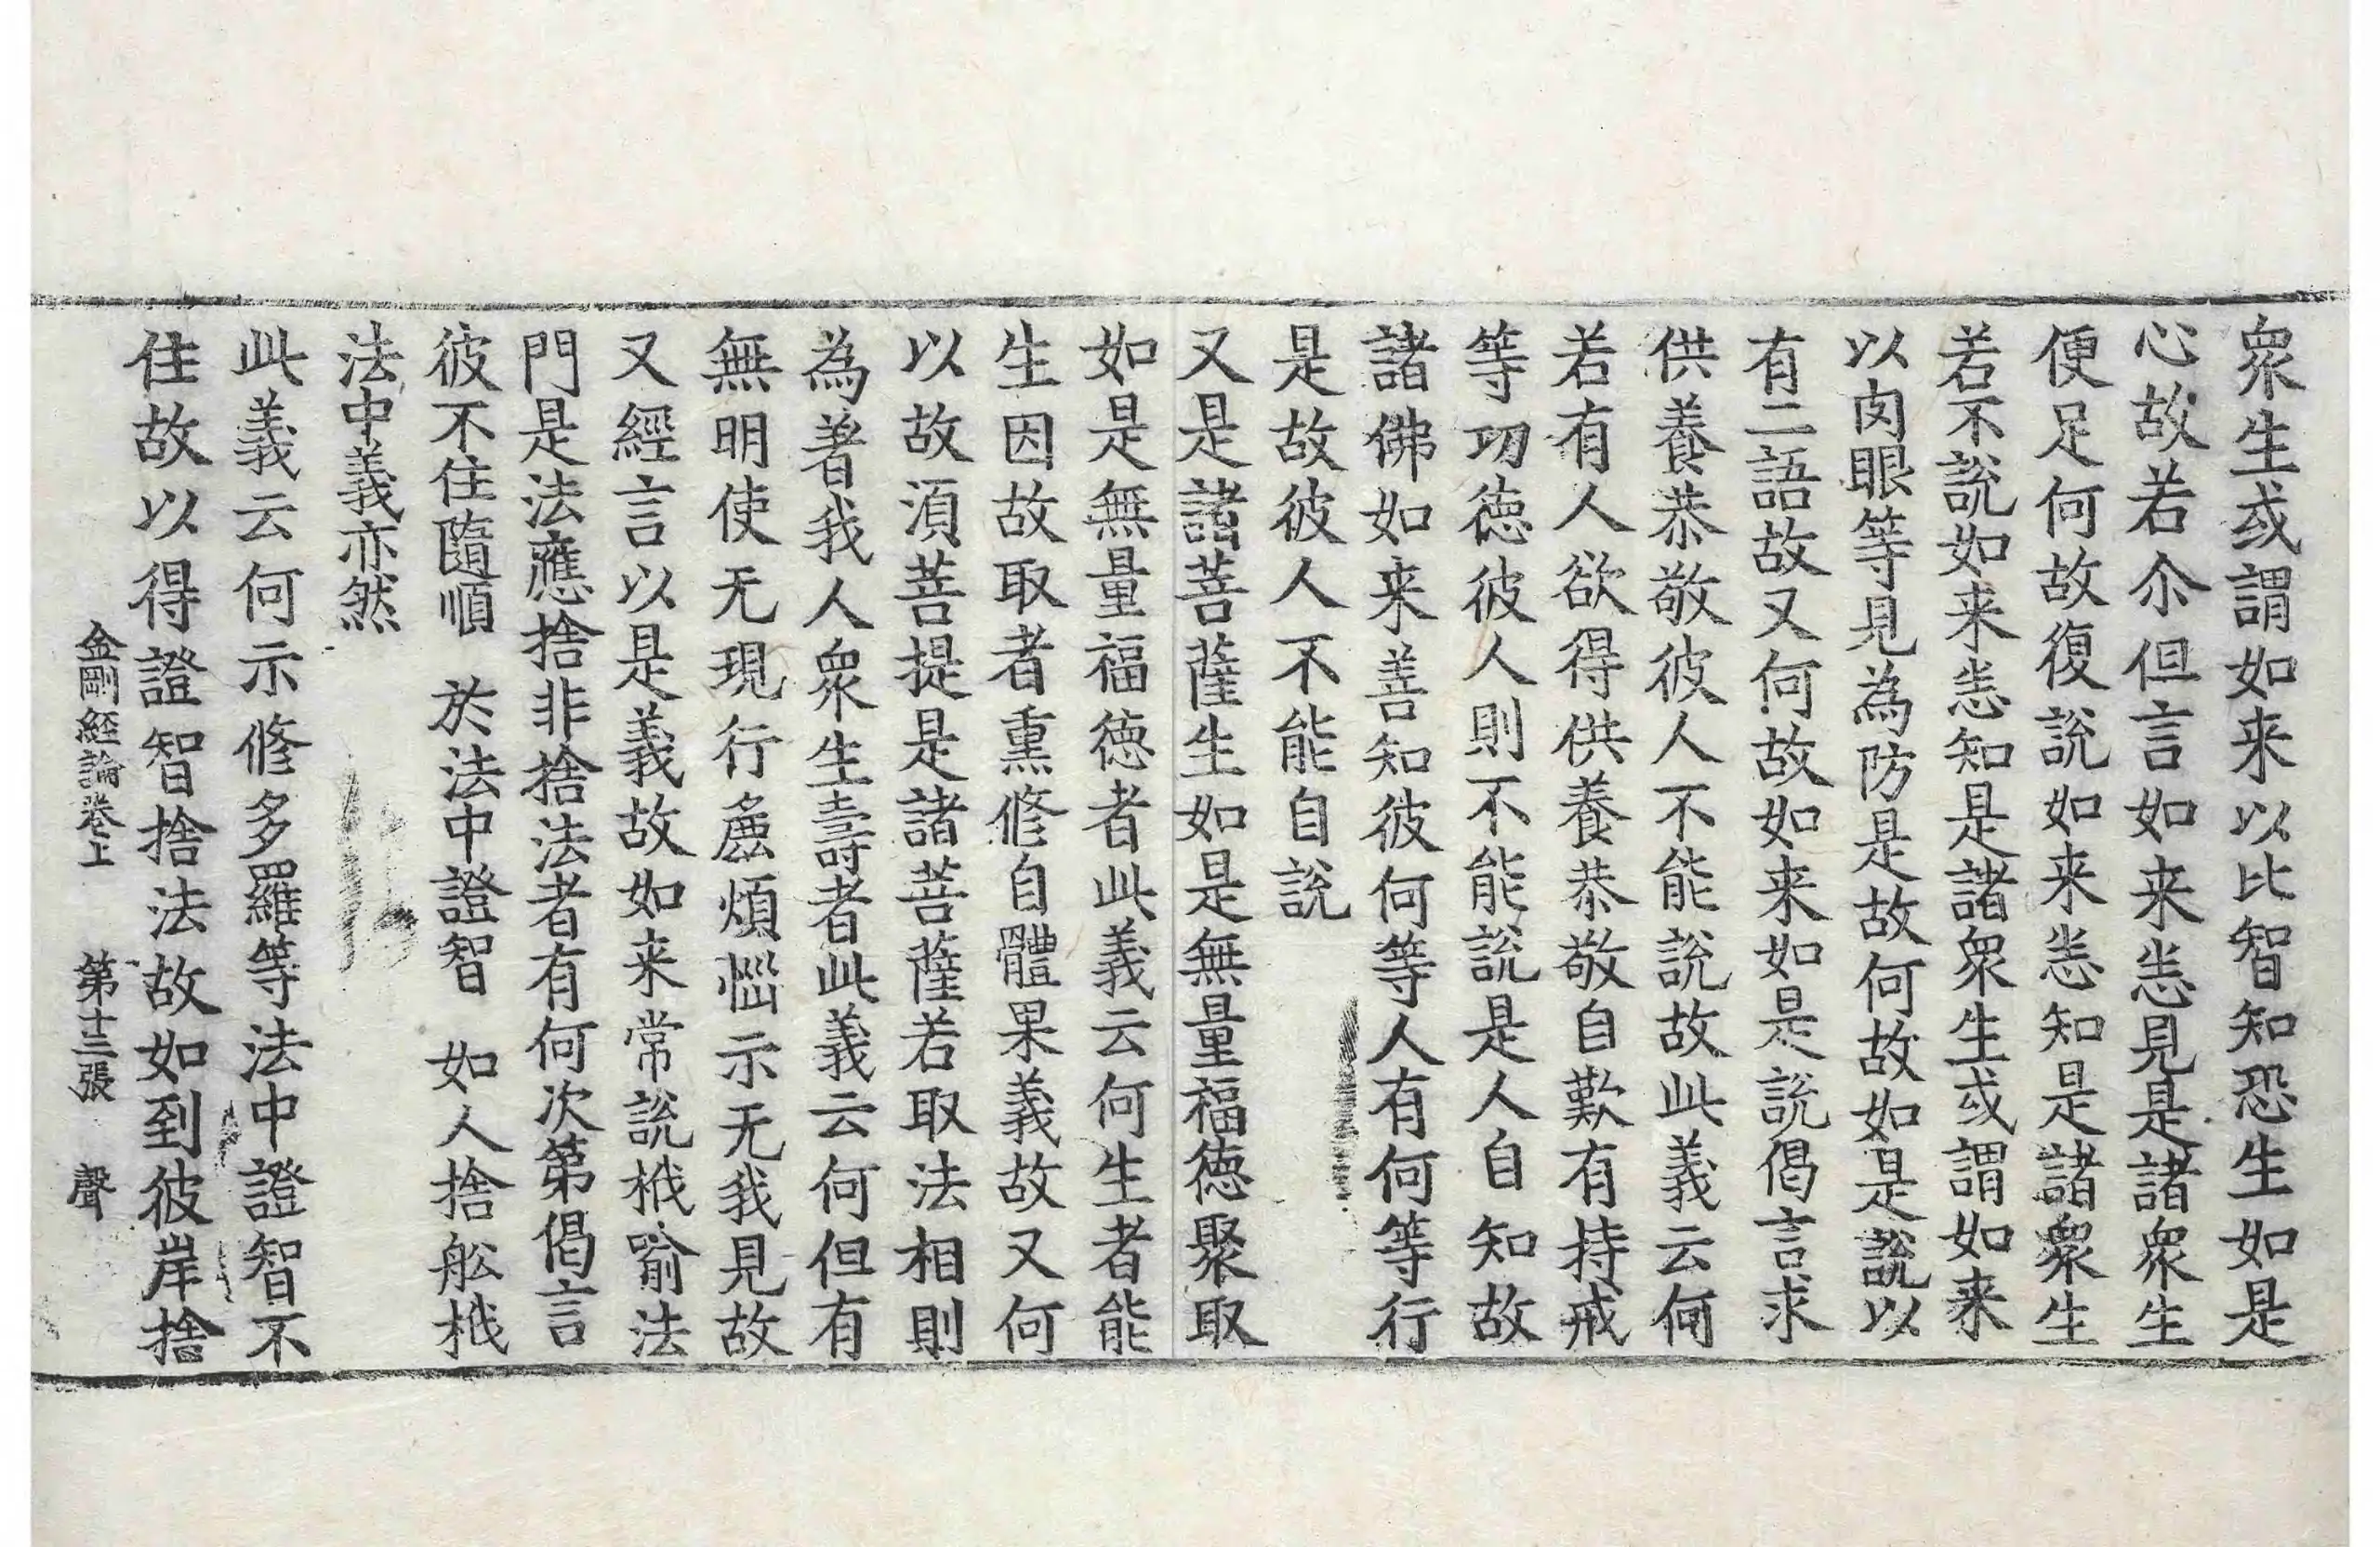 衆生或謂如来以比智知恐生如是
心故若尒但言如来悉見是諸衆生
便足何故復説如来悉知是諸衆生
若不説如来悉知是諸衆生或謂如来
以肉眼等見為防是故何故如是説以
有二語故又何故如来如是説偈言求
供養恭敬彼人不能説故此義云何
若有人欲得供養恭敬自歎有持戒
等功徳彼人則不能説是人自知故
諸佛如来善知彼何等人有何等行
是故彼人不能自説
又是諸菩薩生如是無量福徳聚取
如是無量福徳者此義云何生者能
生因故取者熏修自體果義故又何
以故湏菩提是諸菩薩若取法相則
為著我人衆生壽者此義云何但有
無明使无現行麁煩惱示无我見故
又經言以是義故如来常説栰喻法
門是法應捨非捨法者有何次第偈言
彼不住隨順　於法中證智　如人捨舩栰
法中義亦然
此義云何示修多羅等法中證智不
住故以得證智捨法故如到彼岸捨
金剛経論卷上　第十三張　聲